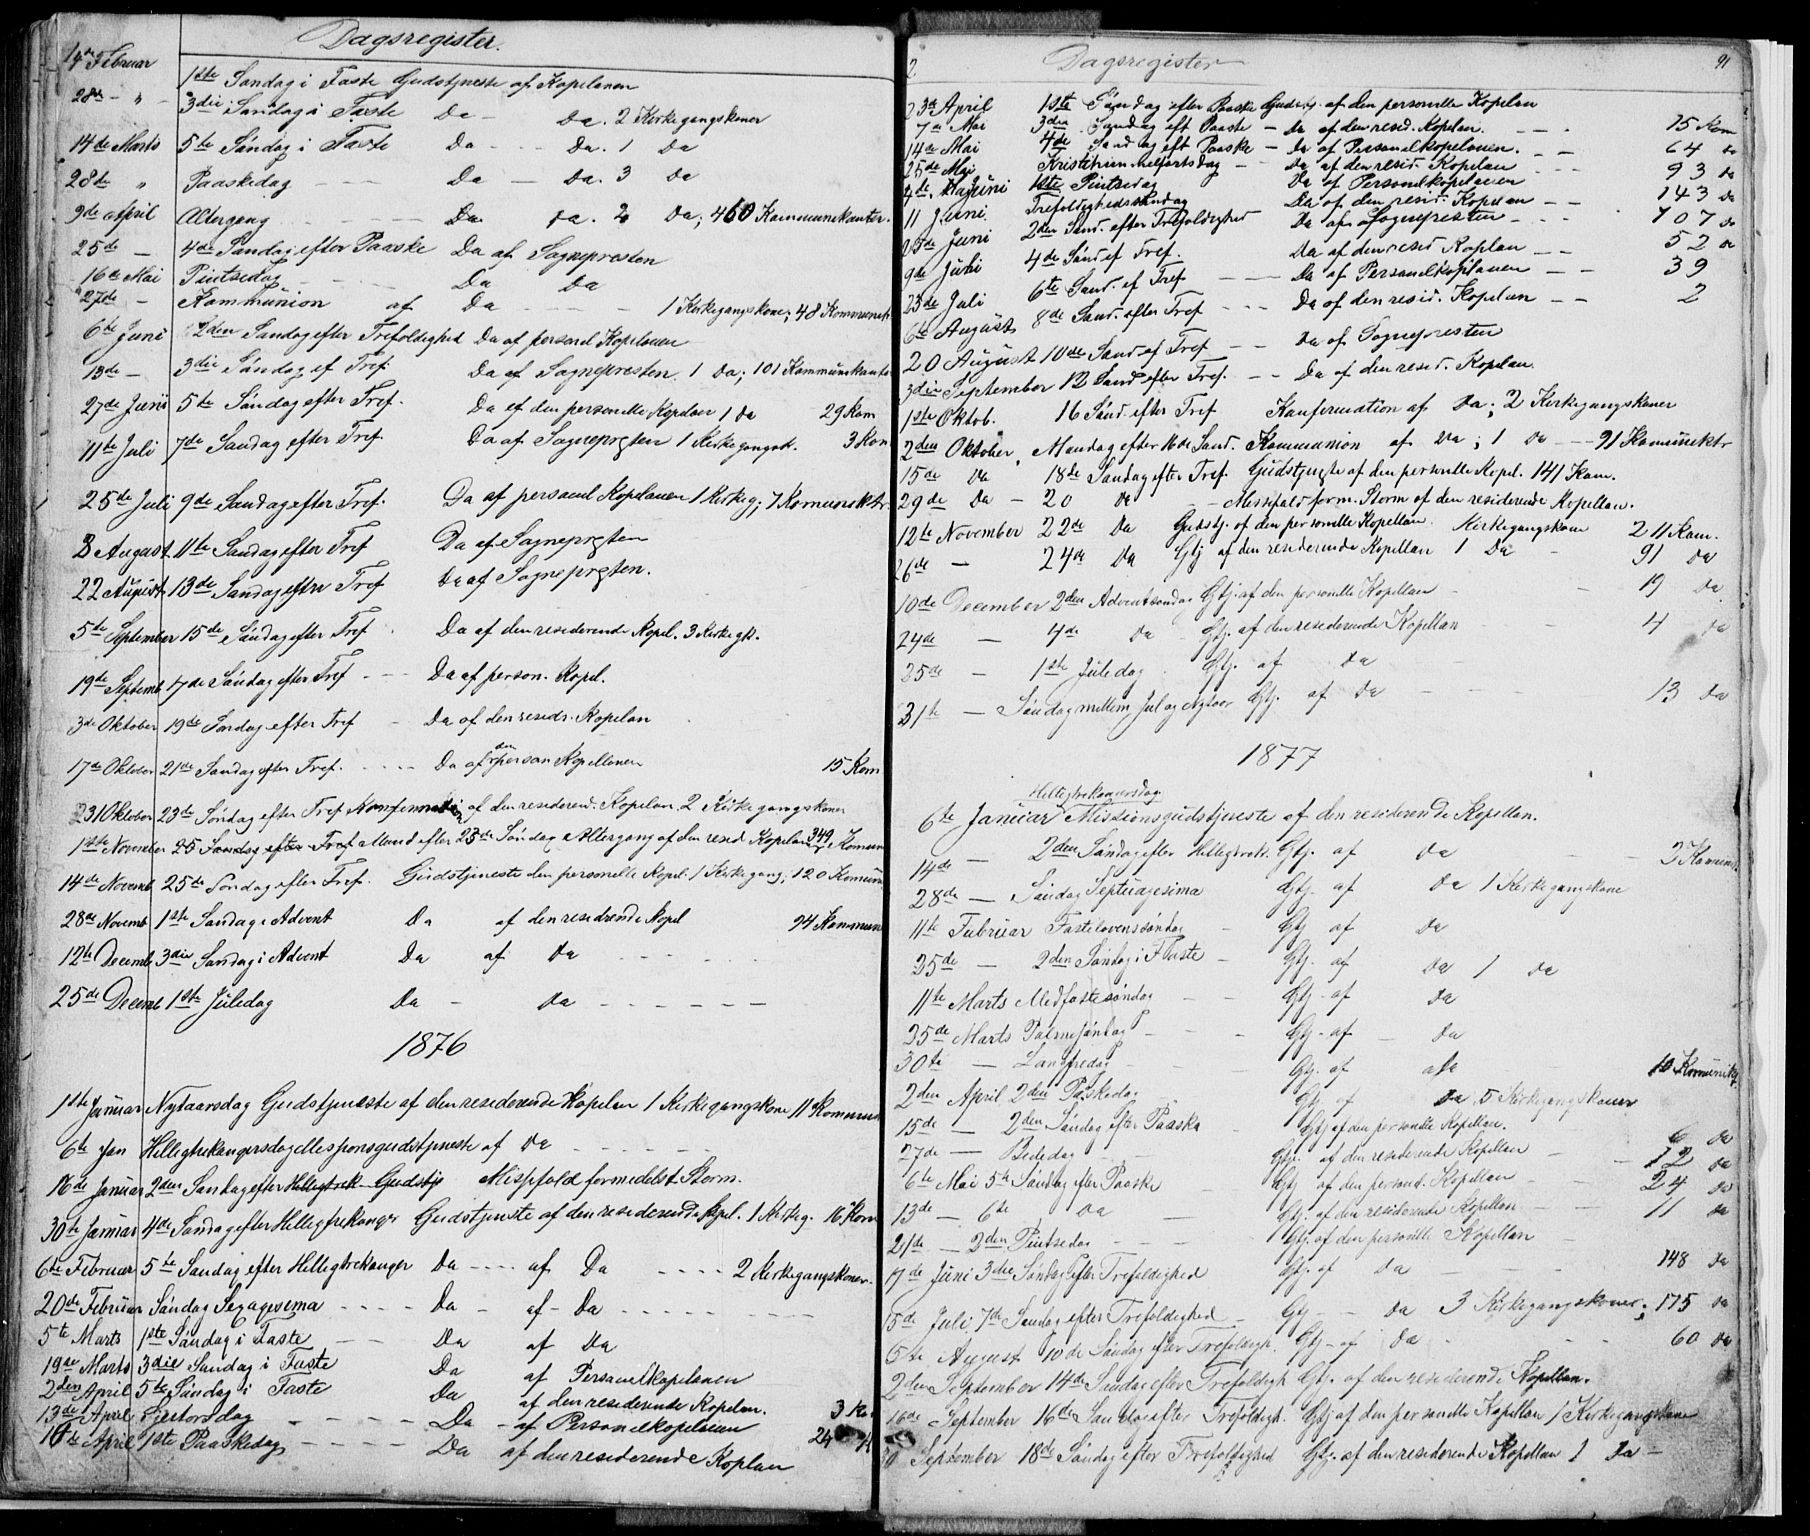 Dagsregister.
14de Februar 1ste Søndag i Faste Gudstjeneste af Kapelanen
28de " 3die Søndag i Faste Da Da. 2 Kirkegangskoner
14de Marts 5te Søndag i Faste Da Da. 1 Da
28de " Paaskedag Da Da. 3 Da
9de April Altergang Da Da. 2 Da; 460 Kommunikanter.
25de 4de Søndag efter Paaske Da af Sognepresten
16de Mai Pintsedag Da Da
27de Kommunion af Da 1 Kirkegangskone; 48 Kommunik
6te Juni 2den Søndag efter Trefoldighed Da af personel Kapelanen
13de 3die Søndag ef Tref. Da af Sognepresten. 1 Da; 101 Kommunikante
27de Juni 5te Søndag efter Tref. Da af den personelle Kapelan 1 Da 29 Kom
11te Juli 7de Søndag efter Tref. Da af Sognepresten 1 Kirkegangsk. 3 Kom
25de Juli 9de Søndag efter Tref. Da af personel Kapelanen 1 Kirkeg; 7 Komuniktr.
8 August 11te Søndag efter Tref Da af Sognepresten
22 August 13de Søndag efter Tref Da af Sognepresten.
5te September 15de Søndag efter Tref Da af den residerende Kapel. 3 Kirkegk.
19de Septemb 17de Søndag efter Tref Da af person. Kapel.
3de Oktober 19de Søndag efter Tref Da af den resids. Kapelan
17de Oktober 21de Søndag efter Tref. Da af den person Kapellanen 15 Kom
31 Oktober 23de Søndag efter Tref Konfirmation af den residerend. Kapelan. 2 Kirkegangskoner
1ste November 25 Søndag efter Tref Mand efter 23de Søndag Altergang af den resid Kapelan 349 Komun
14de Novemb 25de Søndag efter Tref. Gudstjeneste den personelle Kapel. 1 Kirkegang; 120 Komun
28de Novemb 1ste Søndag i Advent Da af den residrende Kapel 94 Kommun
12te Decemb 3die Søndag i Advent Da af Da
25de Decemb 1ste Juledag Da Da
1876
1ste Januar Nytaarsdag Gudstjeneste af den residerende Kapelan 1 Kirkegangskone 11 Kommun
6te Jan Helligtrekongersdag Messionsgudstjeneste af Da
16de Januar 2den Søndag efter Helligtrek Gudstj Misfald formedelst Storm.
30te Januar 4de Søndag efter Helligtrekonger Gudstjenste af den residerende Kapel. 1 Kirkeg. 16 Kom
6te Februar 5te Søndag efter Helligtrekonger Da af Da 2 Kirkegangskoner.
20de Februar Søndag Segagesema Da af Da
5te Marts 1ste Søndag i Faste Da af Da
19de Marts 3die Søndag i Faste Da af Personelkapelanen
2den April 5te Søndag i Faste Da af den residerende Kapelan.
13de April Skjertorsdag Da af Personelkapelanen 3 Ko
16de April 1ste Paaskedag Da af den residerende Kaplan 24 K
2 Dagsregister 91
23de April 1ste Søndag efter Paaske Gudstj. af den personelle Kapelan
7de Mai 3die Søndag eft Paaske Da af den resid. Kapelan. 15 Kom
14de Mai 4de Sønd ag eft Paaske Da af Personelkapelanen. 64 Da
25de Mai Kristihimmelfartsdag Da af den resid. Kapelan 93 Da
4de Juni 1ste Pintsedag Da af Personelkapelanen 143 Da
11 Juni. Trefoldighedssøndag Da af den resid. Kapelan
25de Juni 2den Sønd. efter Trefoldighed Da af Sognepresten 107 Da
9de Juli 4de Sønd ef Tref. Da af den resid Kaplan 52 Da
23de Juli 6te Sønd. ef Tref Da af Personelkapelanen 39
6te August 8de Sønd. efter Tref Da af den resid. Kapelan 2
20 August 10de Sønd af Tref Da af Sognepresten
3die September 12 Sønd efter Tref. Da af den resid. Kapelan.
1ste Oktob. 16 Sønd. efter Tref Konfirmation af Da; 2 Kirkegangskoner
2den Oktober Mandag efter 16de Sønd. Kommunion af Da; 1 Da 91 Komunektr
15de Da 18de Søndag efter Tref. Gudstjenste af den personelle Kapel. 141 Kom.
29de Da 20 Da Messefald form. Storm af den residerende Kapellan.
12te November 22de Da Gudstj. af den personelle Kapellan. Kirkegangskone 211 Kom.
26de 24de Da Gtj af den residerende Kapellan 1 Da 91 Da
10de December 2den Adventsøndag Gtj. af den personelle Kapellan 19 Da
24de 4de Da Gtj. af den residerende Kapellan 4 Da
25de 1ste Juledag Gtj. af Da
31te Søndag mellem Jul og Nytaar Gtj. af Da 13 Da
1877
Helligtrekongersdag.
6te Januar Missionsgudstjeneste af den residerende Kapellan.
14de 2den Søndag efter Helligtrek. Gtj. af Da 2 Komuni
28de Søndag Septuagesima Gtj. af Da 1 Kirkegangskone
11te Februar Fastelavenssøndag Gtj af Da
25de 2den Søndag i Faste Gtj. af Da 1 Da
11te Marts Midfastesøndag Gtj. af Da
25de Marts Palmesøndag Gtj. af Da
30te Langfredag Gtj. af Da 10 Komunikt.
2den April 2den Paaskedag Gtj af Da 5 Kirkegangskoner
15de 2den Søndag efter Paaske Gtj af den personelle Kapellan. 6 Da
27de Bededag Gtj. af den residerende Kapellan 12 Da
6te Mai 5te Søndag efter Paaske Gtj af den personel. Kapellan 24 Da
13de 6te Da Gtj. af den residerende Kapellan 11 Da
21de 2den Pintsedag Gtj. af den personelle Kapellan
17de Juni 3die Søndag efter Trefoldighed Gtj. af Da 148 Da
15de Juli 7de Søndag efter Trefoldighed Gtj Da 3 Kirkegangskoner; 175 Da
5te August 10de Søndag efter Trefoldigh. Gtj. af Da 60 Da
2den September 14de Søndag efter Trefoldigh Gtj. af den residerende Kapellan.
16de September 16de Søndag efter Trefoldigh. Gtj af den personelle Kapellan 1 Kirkegangskone
30 September 18de Søndag efter Trefoldighed Gtj. af den residerende Kapellan 1 Da